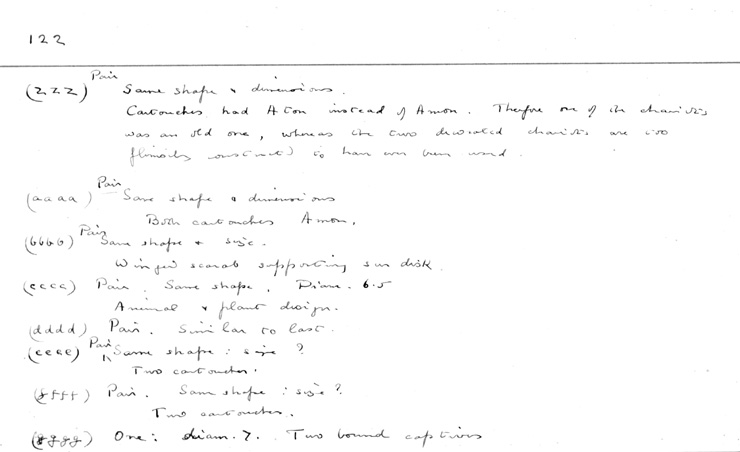 122
(zzz) Pair Same shape & dimensions.
Cartouches had Aton instead of Amon. Therefore one of the chariots
was an old one, whereas the two decorated chariots are too
flimsily construct) to have ever been used.
(aaaa) Pair Same shape & dimensions
Both cartouches Amon.
(bbbb) Pair Same shape & size.
Winged scarab supporting sun disk.
(cccc) Pair. Same shape. Diam. 6.5
Animal & plant design.
(dddd) Pair. Similar to last.
(eeee) Pair Same shape : size ?
Two cartouches.
(ffff) Pair. Same shape : size ?
Two cartouches.
(gggg) One : diam. 7. Two bound captives